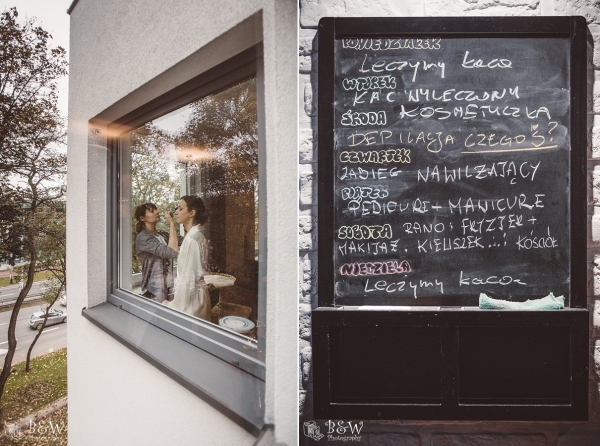 PONIEDZIAŁEK
LECZYMY KACA
WTOREK
KAC WYLECZONY
ŚRODA KOSMETYCZKA
DEPILACJA CZEGOŚ?
CZWARTEK
ZABIEG NAWILŻAJĄCY
PIĄTEK
PEDICURE + MANICURE
SOBOTA RANO: FRYZJER +
MAKIJAŻ. KIELISZEK...! Kościół
NIEDZIELA
LECZYMY KACA
B&W
Photography
B&W
Photography